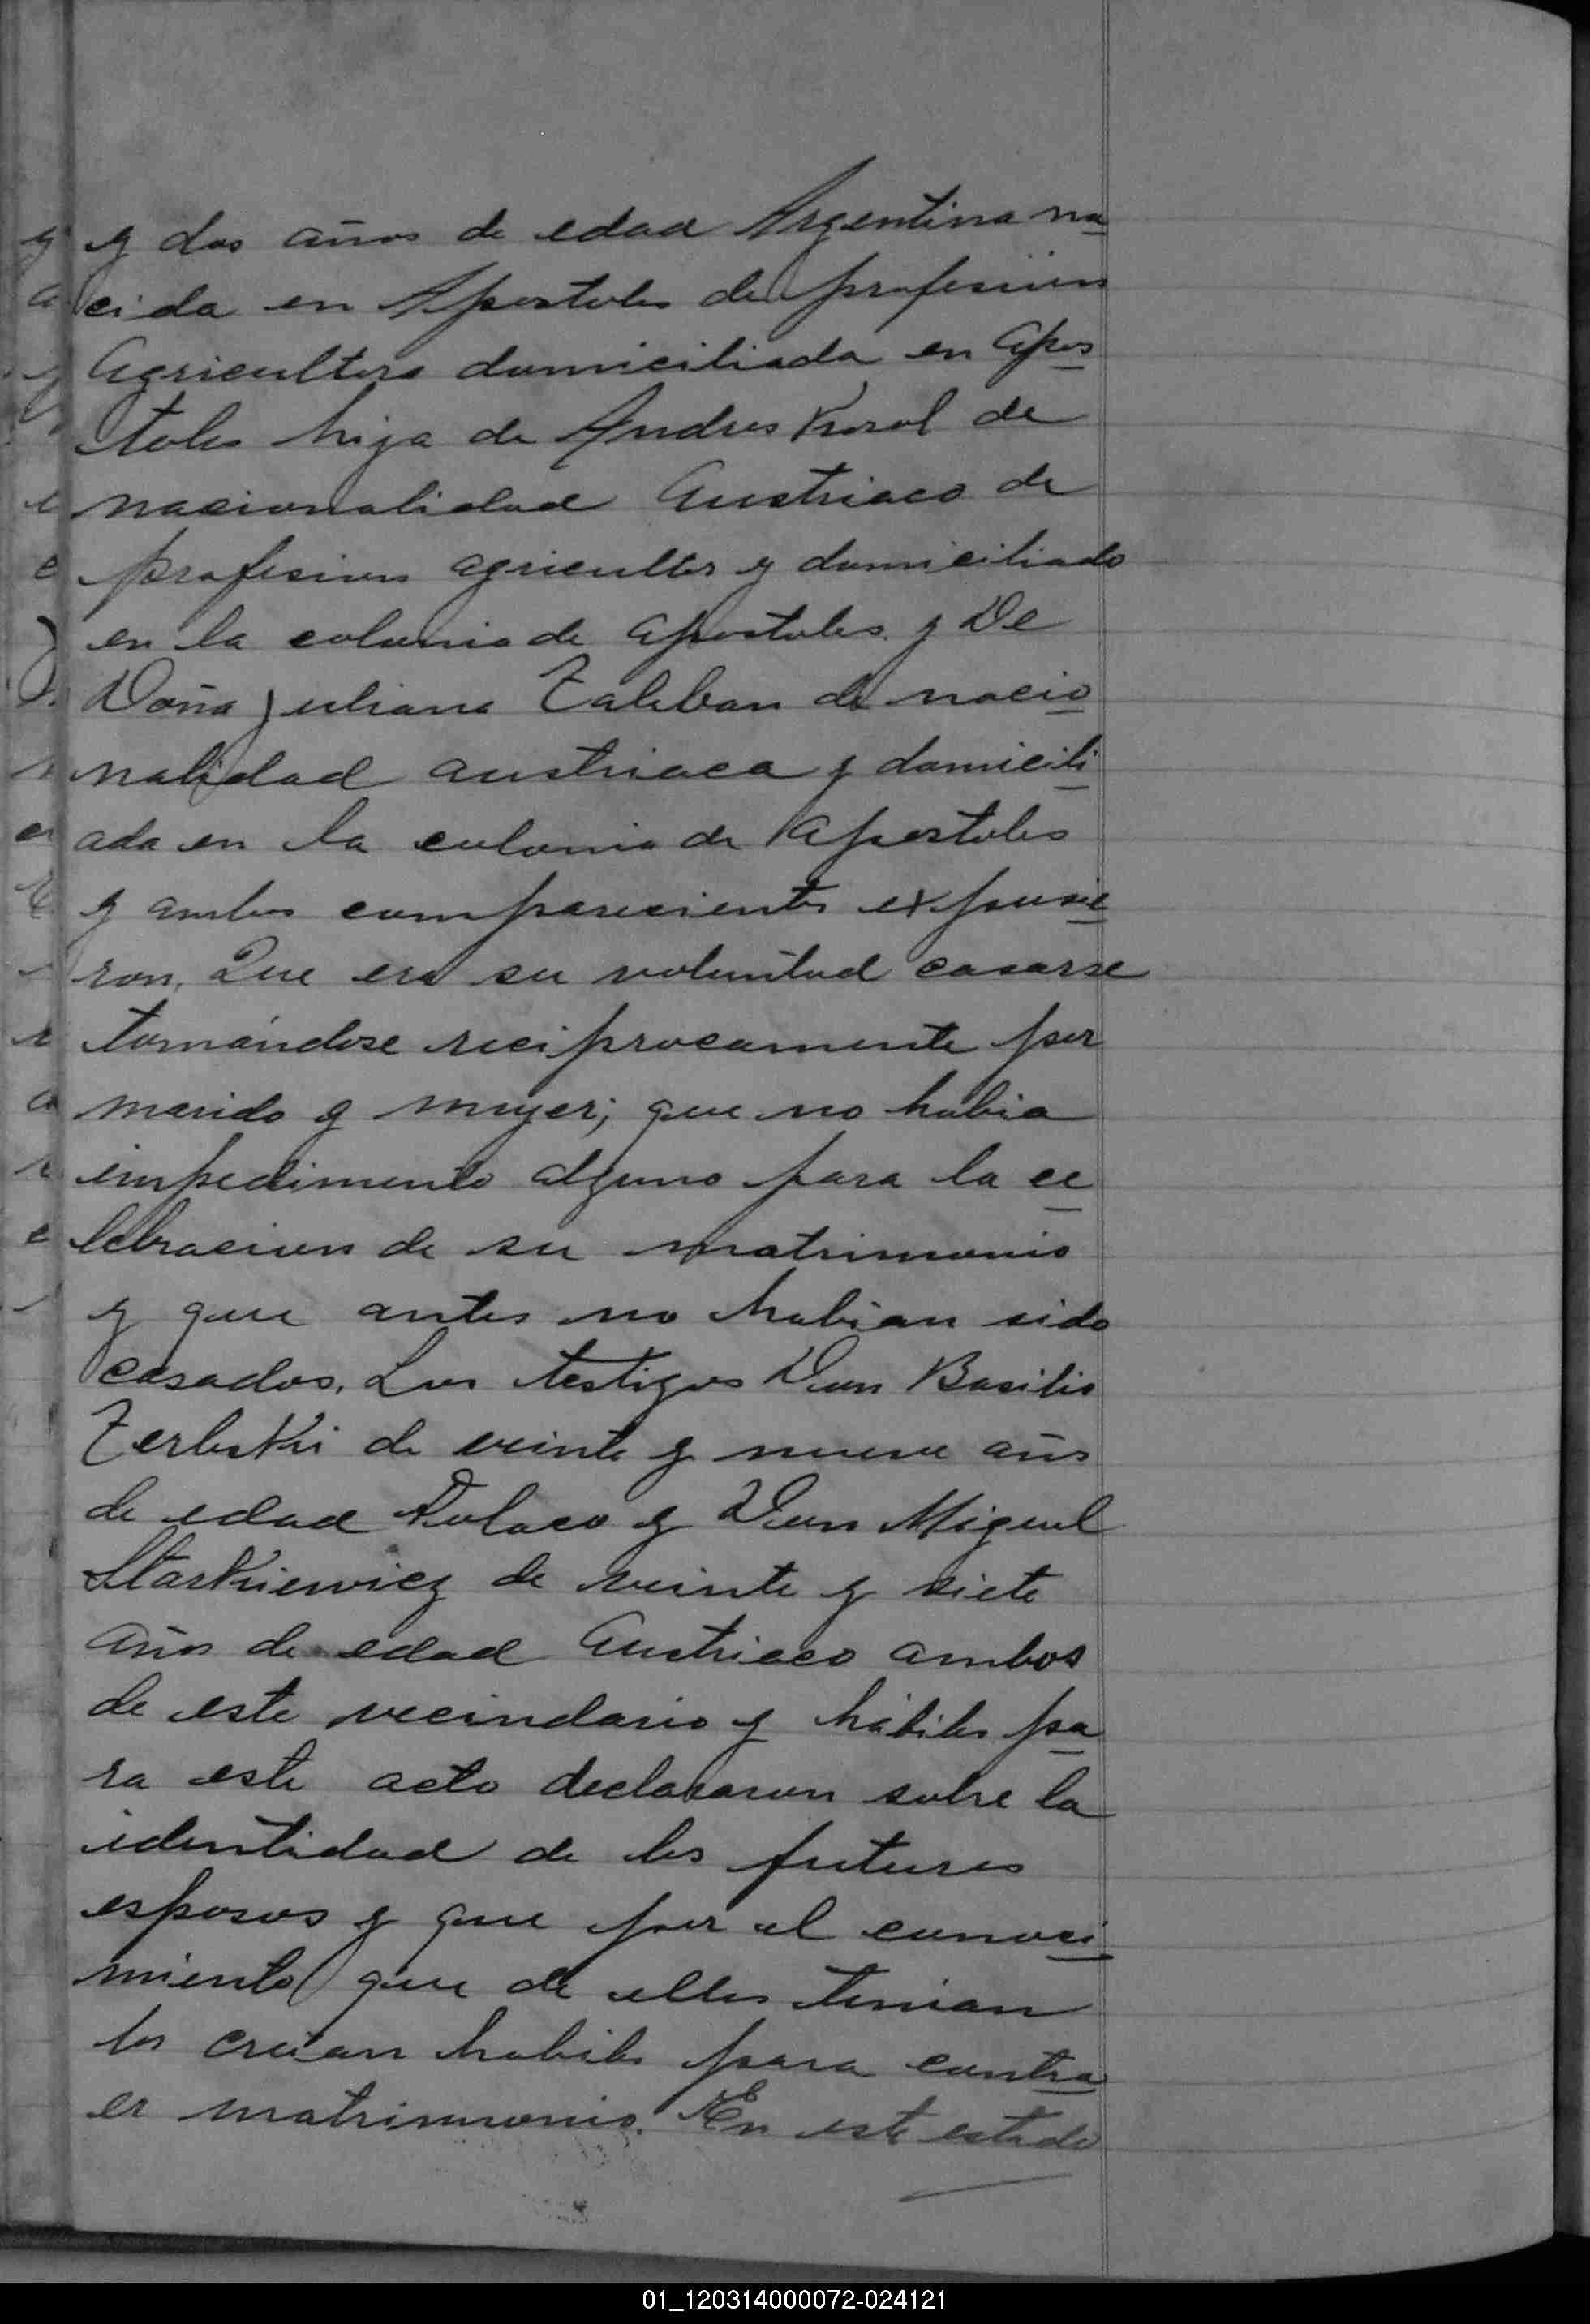 y dos años de edad Argentina na
cida en Apostoles de profesion
Agricultora domiciliada en Apos
toles hija de Andres Korol de
nacionalidad Austriaco de
profesion agricultor y domiciliado
en la colonia de Apostoles y De
Doña Juliana Zaleban de nacio
nalidad austriaca y domicili
ada en la colonia de Apostoles
y ambos comparecientes expusie
ron, Que era su voluntad casarse
tomándose reciprocamente por
marido y mujer; que no habia
impedimento alguno para la ce
lebracion de su matrimonio
y que antes no habian sido
casados. Los testigos Don Basilio
Zerbski de veinte y nueve años
de edad Polaco y Don Miguel
Starkiewicz de veinte y siete
años de edad Austriaco ambos
de este vecindario y hábiles pa
ra este acto declararon sobre la
identidad de los futuros
esposos y que por el conoci
miento que de ellos tenian
los creian habiles para contra
er matrimonio. En este estado
01_120314000072-024121